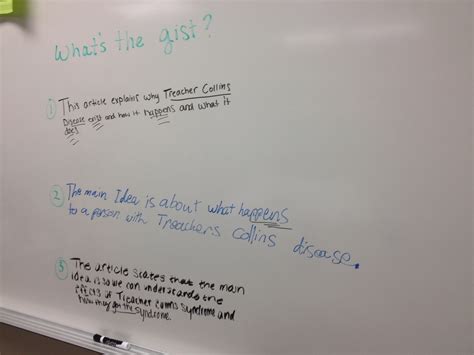 What's the gist?
① This article explains why Treacher Collins
Disease exist and how it happens and what it
does
② The main Idea is about what happens
to a person with Treachers Collins disease.
③ The article states that the main
idea is so we can understands the
effects of Treacher Collins syndrome and
how they got the syndrome.